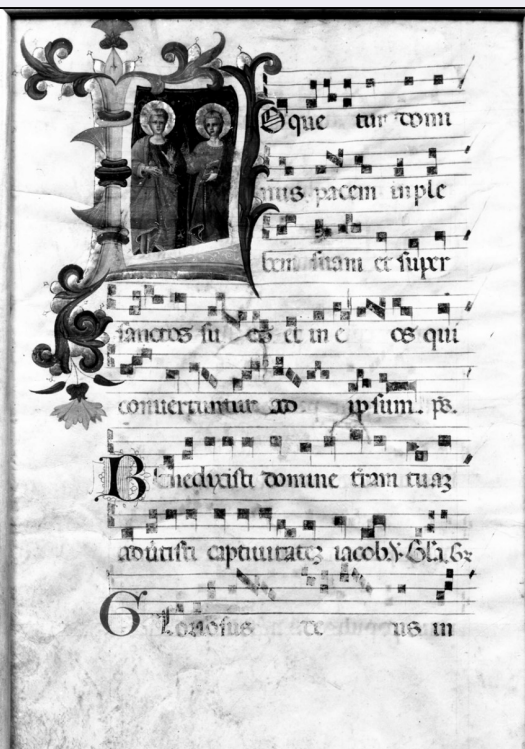 LOque tur domi
nus pacem in ple
bem suam et super
sanctos su os et in e os qui
conuertuntur ad ipsum. p̄s.
Benedixisti domine t̄ram tuaz
auertisti captiuitatez iacob. Gl̄a.
Gloriosus de us in